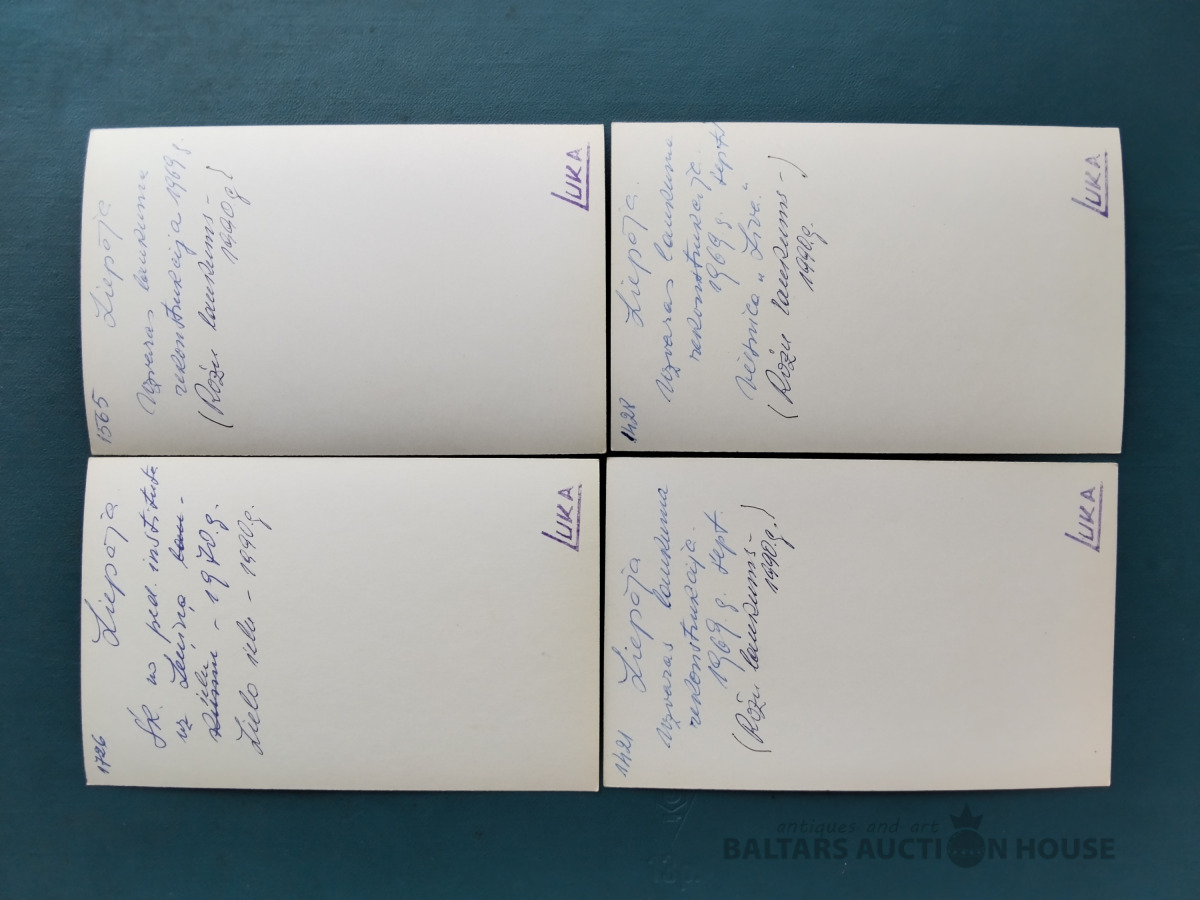 1565
Liepāja
Uzvaras laukuma
rekonstrukcija 1969 g.
(Rožu laukums -
1990 g.)
LUKA
1428
Liepāja.
Uzvaras laukuma
rekonstrukcija.
1969 g. sept.
viesnīca "Līva."
(Rožu laukums -)
1990g.
LUKA
1726
Liepāja
Sk. no ped. institūta
uz Ļeņina lau-
kumu ielu - 1970.g.
Lielo ielu - 1990.g.
LUKA
1421
Liepāja
Uzvaras laukuma
rekonstrukcija.
1969 g. sept.
(Rožu laukums -
1990.g.)
LUKA
antiques and art
BALTARS AUCTION HOUSE